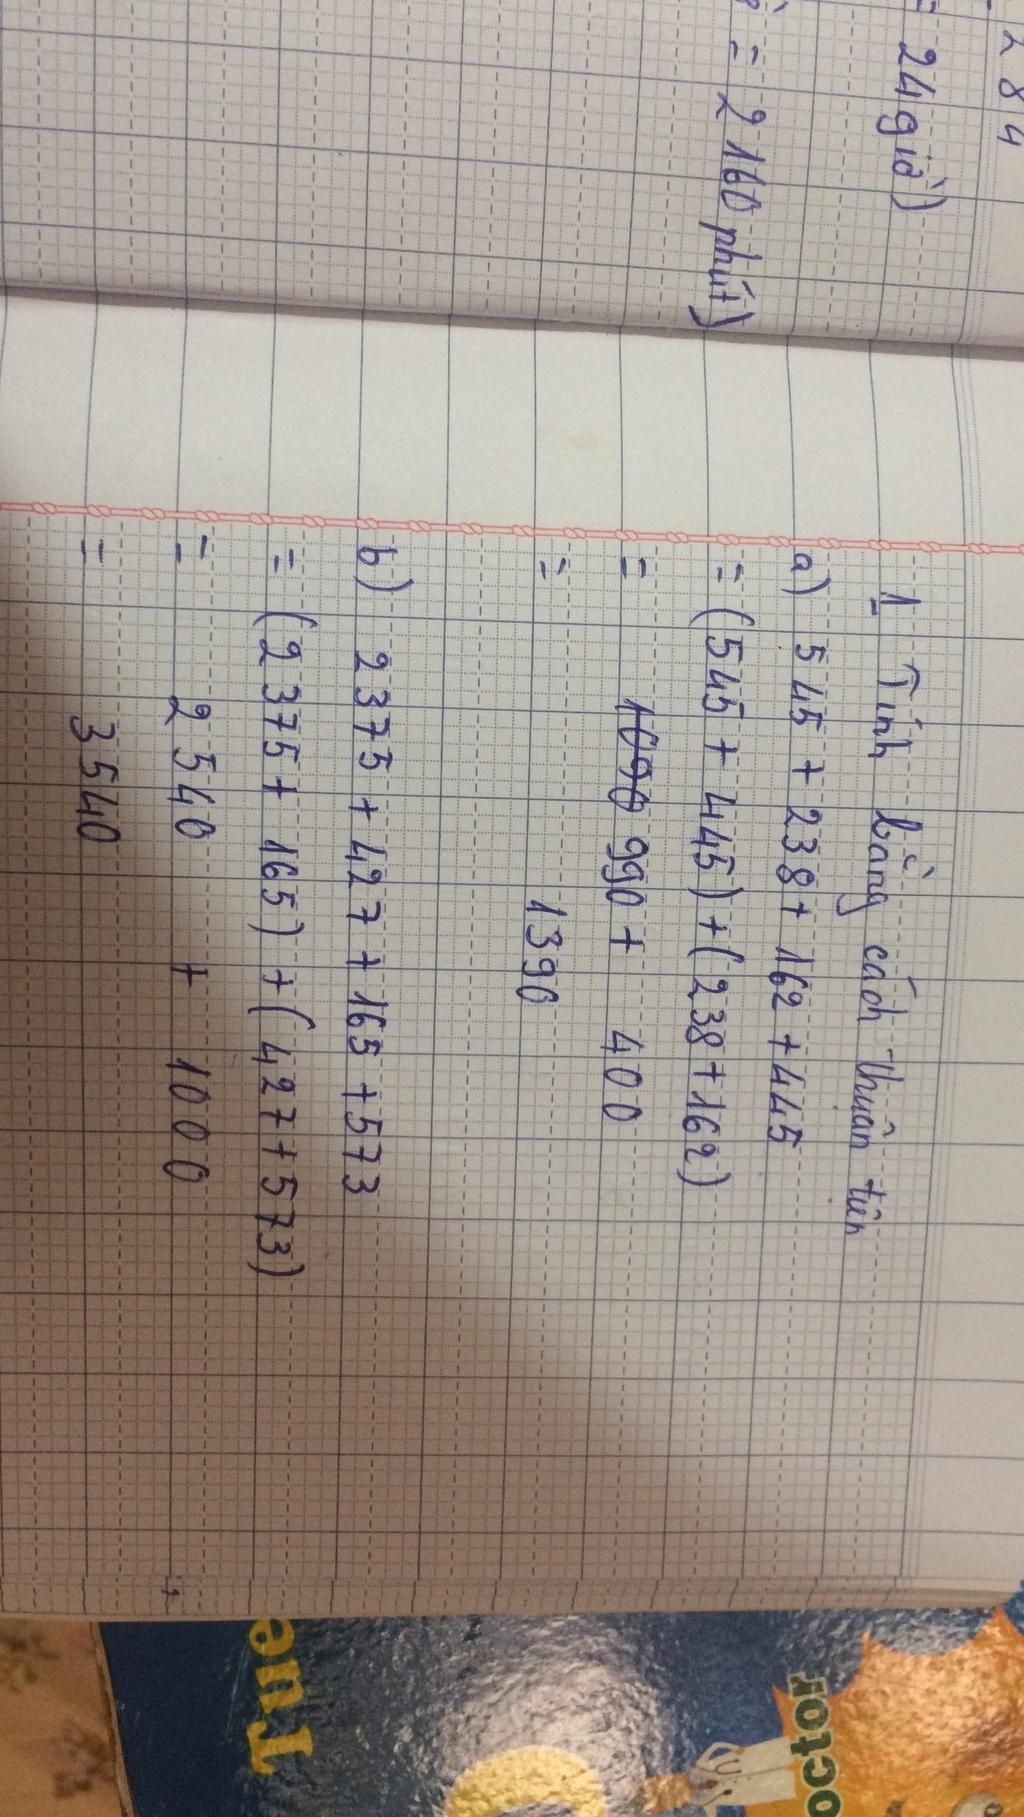 284
= 24 giờ)
= 2160 phút)
1 Tính bằng cách thuân tiên
a) 545 + 238 + 162 + 445
= (545 + 445) + (238 + 162)
= 1090 990 + 400
= 1390
b) 2375 + 427 + 165 + 573
= (2375 + 165) + (427 + 573)
= 2540 + 1000
= 3540
octor